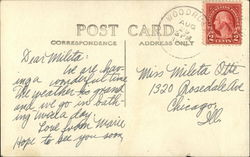 POST CARD
CORRESPONDENCE
ADDRESS ONLY
WOODR
AUG
Dear Mileta:
We are hav-
ing a wonderful time
The weather is grand
and we go in bath-
ing twice a day.
Love from Marie
Hope to see you soon
Miss Mileta Otte
1320 Rosedale Ave
Chicago,
Ill.